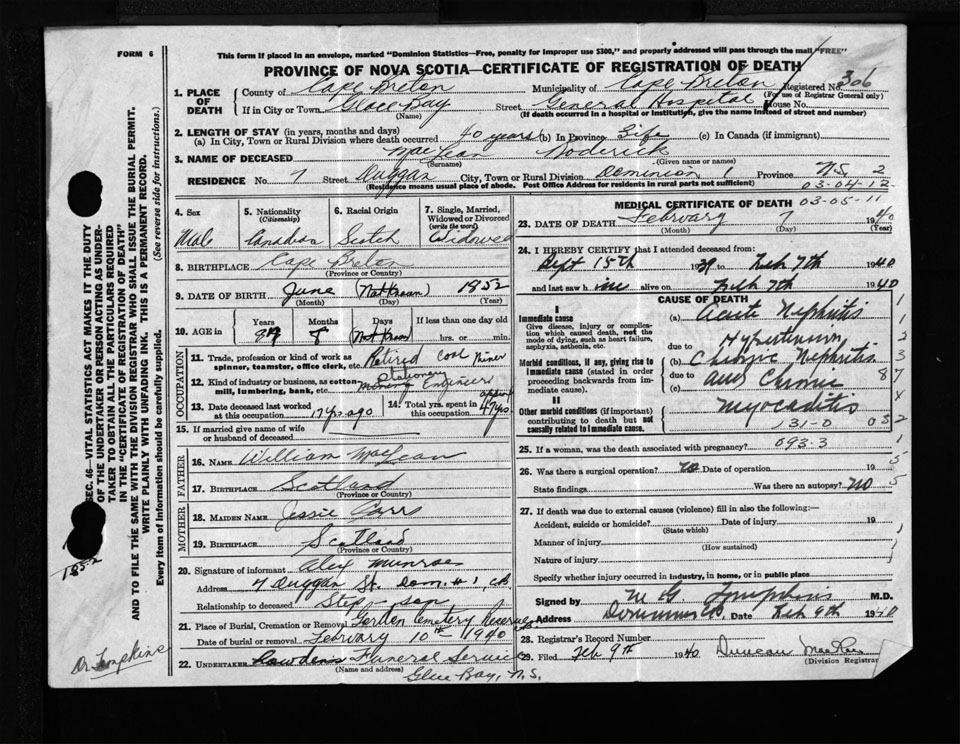 FORM 6
This form if placed in an envelope, marked "Dominion Statistics—Free, penalty for improper use $300," and properly addressed will pass through the mail "FREE"
PROVINCE OF NOVA SCOTIA—CERTIFICATE OF REGISTRATION OF DEATH
1. PLACE OF DEATH
County of Cape Breton Municipality of Cape Breton Registered No. 306
(For use of Registrar General only)
If in City or Town Glace Bay Street General Hospital House No.
(Name) (If death occurred in a hospital or institution, give the name instead of street and number)
2. LENGTH OF STAY (in years, months and days)
(a) In City, Town or Rural Division where death occurred 40 years (b) In Province Life (c) In Canada (if immigrant)
3. NAME OF DECEASED MacLean Roderick
(Surname) (Given name or names)
RESIDENCE No. 7 Street Duggan City, Town or Rural Division Dominion 1 Province N.S. 2
(Residence means usual place of abode. Post Office Address for residents in rural parts not sufficient) 03-04-12
4. Sex Male
5. Nationality (Citizenship) Canadian
6. Racial Origin Scotch
7. Single, Married, Widowed or Divorced (write the word) Widowed
8. BIRTHPLACE Cape Breton
(Province or Country)
9. DATE OF BIRTH June (Not Known) 1852
(Month) (Day) (Year)
10. AGE in Years 87 Months 8 Days Not Known If less than one day old hrs. or min.
OCCUPATION
11. Trade, profession or kind of work as spinner, teamster, office clerk, etc. Retired Coal Miner
12. Kind of industry or business, as cotton mill, lumbering, bank, etc. Stationery Engineer
13. Date deceased last worked at this occupation 17 yrs. ago
14. Total yrs. spent in this occupation 47 yrs
15. If married give name of wife or husband of deceased
FATHER
16. NAME William MacLean
17. BIRTHPLACE Scotland
(Province or Country)
MOTHER
18. MAIDEN NAME Jessie
19. BIRTHPLACE Scotland
(Province or Country)
20. Signature of informant Alex Munroe
Address 7 Duggan St. Dom. # 1, C.B.
Relationship to deceased Step-son
21. Place of Burial, Cremation or Removal Cemetery Reserve
Date of burial or removal February 10th 1940
22. UNDERTAKER Funeral Service
(Name and address)
Glace Bay, N.S.
MEDICAL CERTIFICATE OF DEATH 03-05-11
23. DATE OF DEATH February 7 1940
(Month) (Day) (Year)
24. I HEREBY CERTIFY that I attended deceased from:
Sept 15th 1939 to Feb 7th 1940
and last saw him alive on Feb 7th 1940
CAUSE OF DEATH
I
Immediate cause
Give disease, injury or complication which caused death, not the mode of dying, such as heart failure, asphyxia, asthenia, etc.
(a) Acute Nephritis
due to Hypertension
Morbid conditions, if any, giving rise to immediate cause (stated in order proceeding backwards from immediate cause).
(b) Chronic Nephritis
due to
(c) and Chronic
II
Other morbid conditions (if important) contributing to death but not causally related to immediate cause.
Myocarditis
131-0
25. If a woman, was the death associated with pregnancy? 093-3
26. Was there a surgical operation? no Date of operation 19
State findings Was there an autopsy? no
27. If death was due to external causes (violence) fill in also the following:—
Accident, suicide or homicide? Date of injury 19
(State which)
Manner of injury
(How sustained)
Nature of injury
Specify whether injury occurred in industry, in home, or in public place
Signed by M G Tompkins M.D.
Address Dominion C.B. Date Feb 9th 1940
28. Registrar's Record Number
29. Filed Feb 9th 1940 Duncan MacRae
(Division Registrar)
SEC. 46—VITAL STATISTICS ACT MAKES IT THE DUTY OF THE UNDERTAKER OR PERSON ACTING AS UNDERTAKER TO OBTAIN ALL THE PARTICULARS REQUIRED IN THE "CERTIFICATE OF REGISTRATION OF DEATH" AND TO FILE THE SAME WITH THE DIVISION REGISTRAR WHO SHALL ISSUE THE BURIAL PERMIT.
WRITE PLAINLY WITH UNFADING INK. THIS IS A PERMANENT RECORD.
Every item of Information should be carefully supplied. (See reverse side for instructions.)
1852
Dr Tompkins